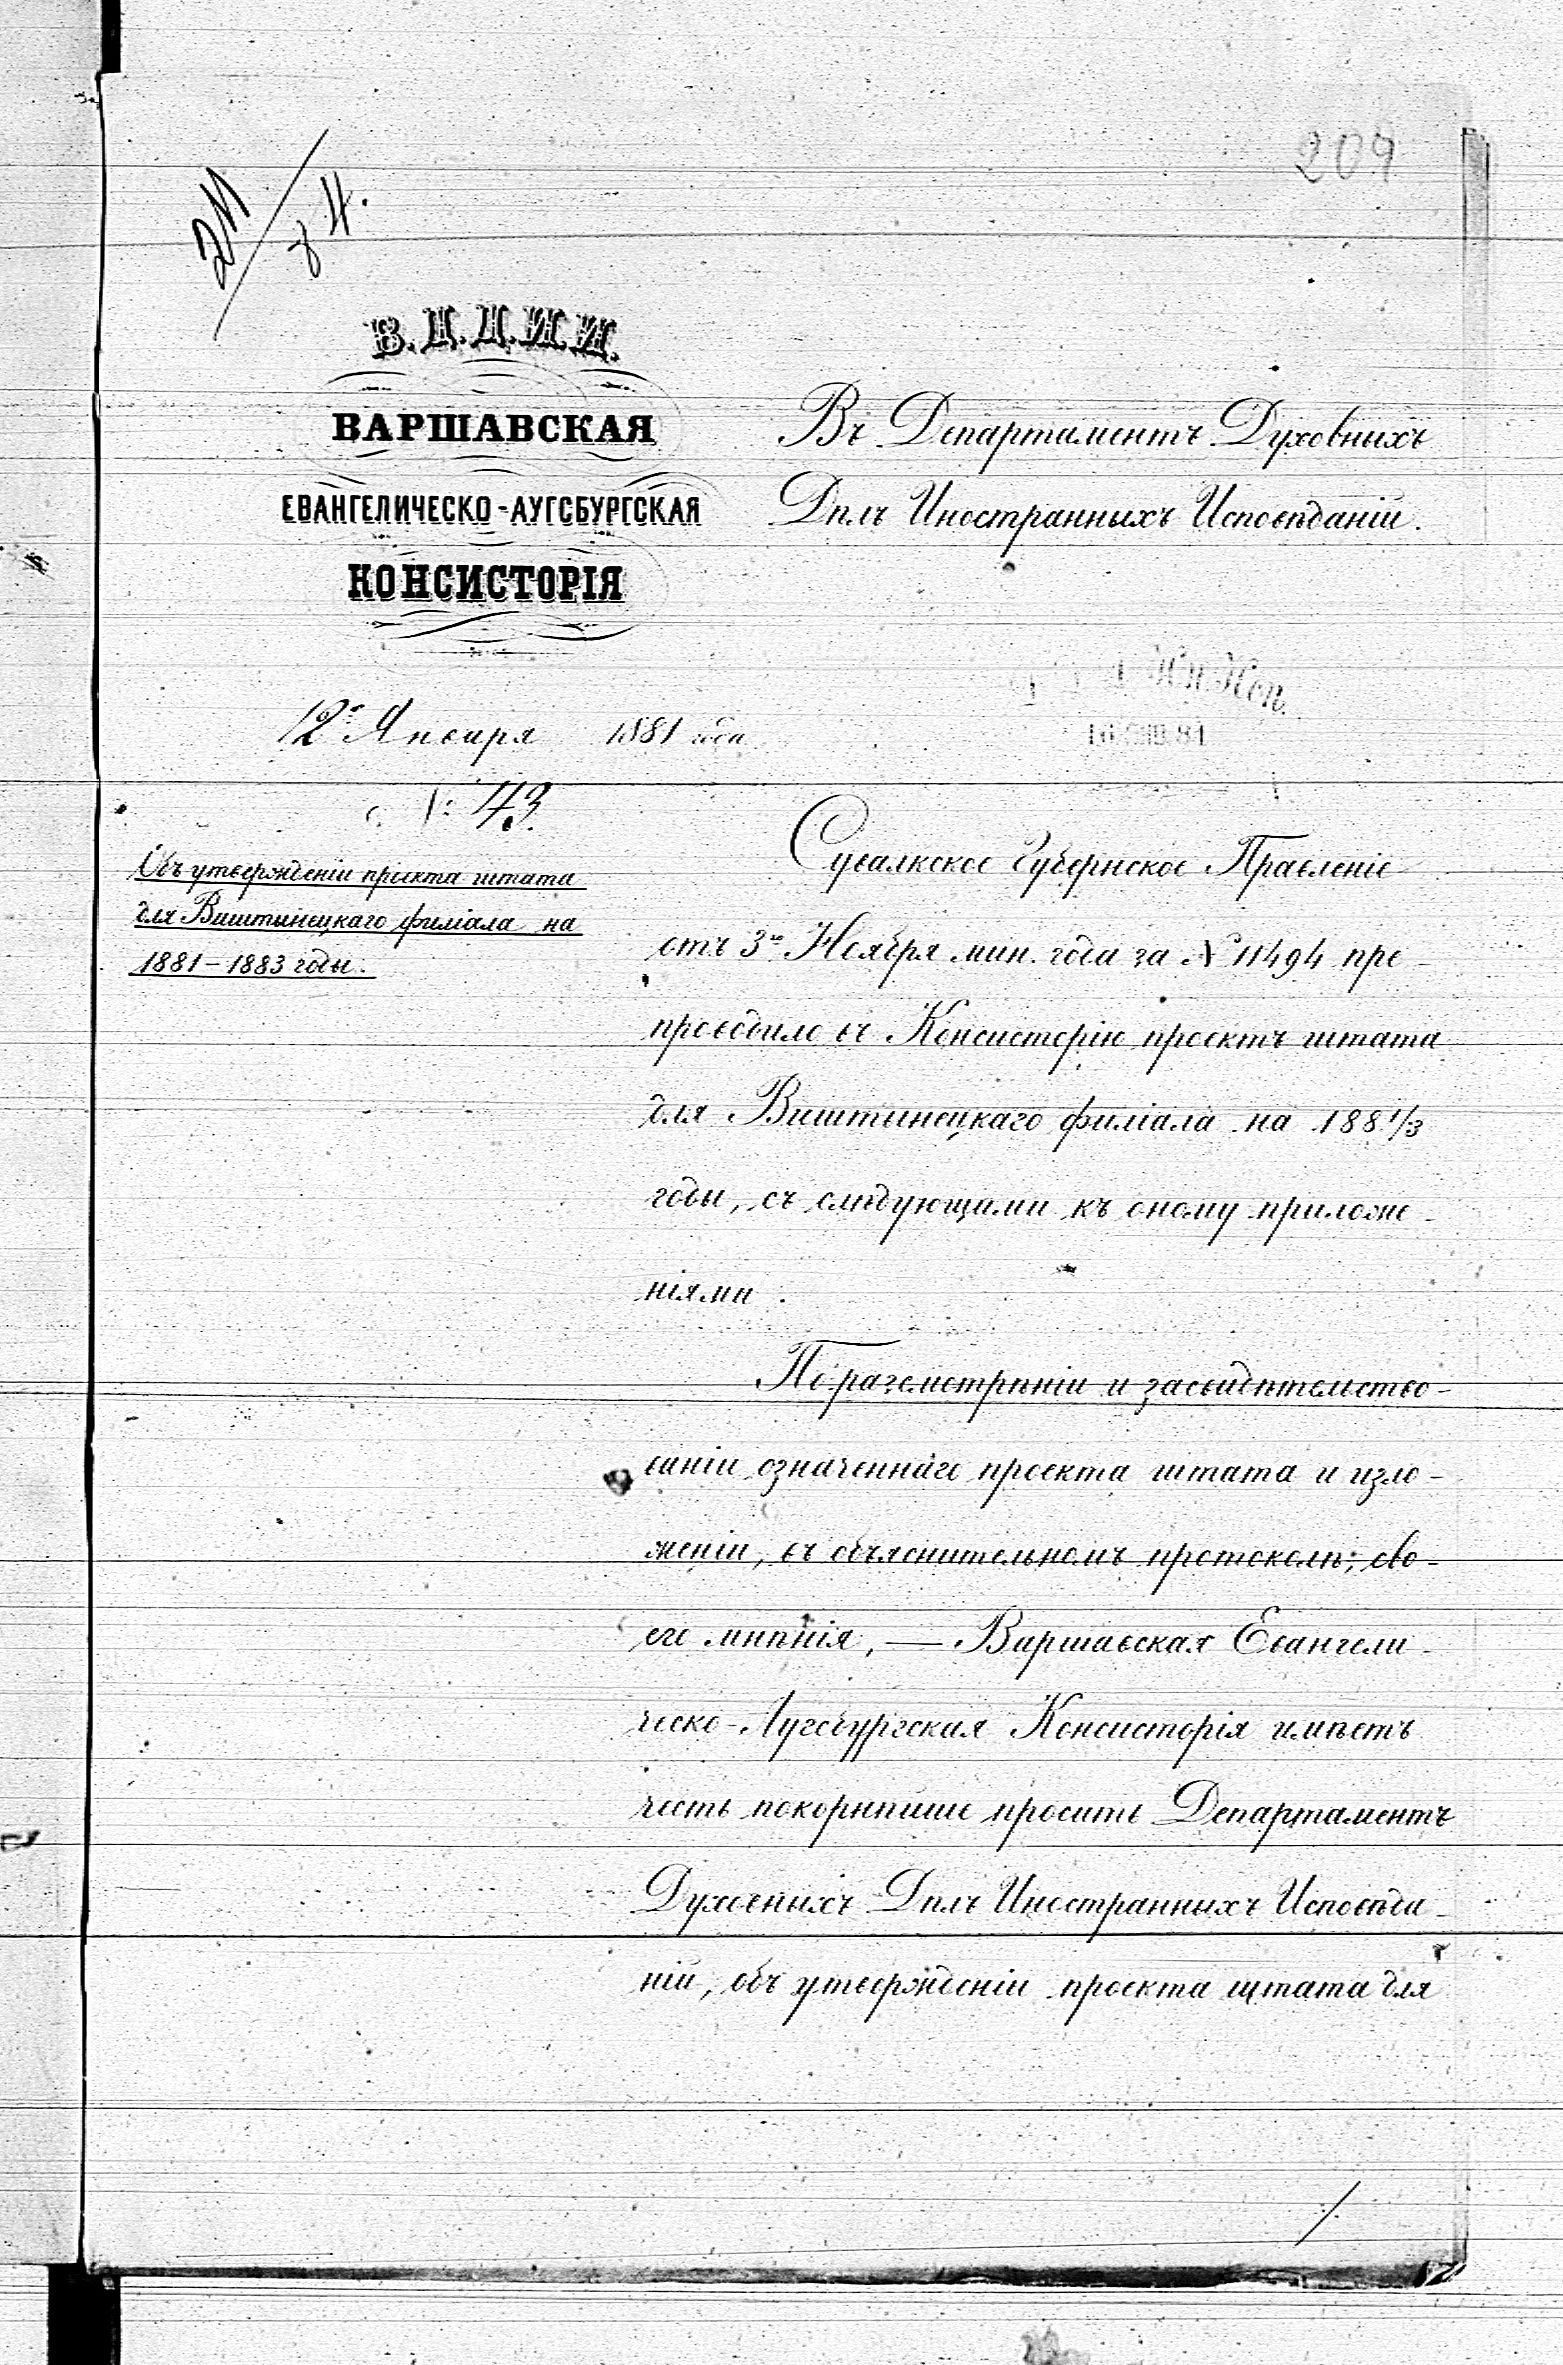 209
211
84.
В.Ц.Д.И.И.
ВАРШАВСКАЯ
ЕВАНГЕЛИЧЕСКО-АУГСБУРГСКАЯ
КОНСИСТОРІЯ
Въ Департаментъ Духовныхъ
Дѣлъ Иностранныхъ Исповѣданій.
12го Января 1881 года
43.
Объ утвержденіи проекта штата
для Виштынецкаго филіала на
1881-1883 годы.
Сувалкское Губернское Правленіе
отъ 3го Ноября мин. года за № 11494 пре-
проводило въ Консисторію проектъ штата
для Виштынецкаго филіала на 1881/3
годы, съ слѣдующими къ оному приложе-
ніями.
По разсмотрѣніи и засвидѣтельство-
ваніи означеннаго проекта штата и изло-
женіи, въ объяснительномъ протоколѣ, сво-
его мнѣнія, — Варшавская Евангели-
ческо-Аугсбургская Консисторія имѣетъ
честь покорнѣйше просить Департаментъ
Духовныхъ Дѣлъ Иностранныхъ Исповѣда-
ній, объ утвержденіи проекта штата для